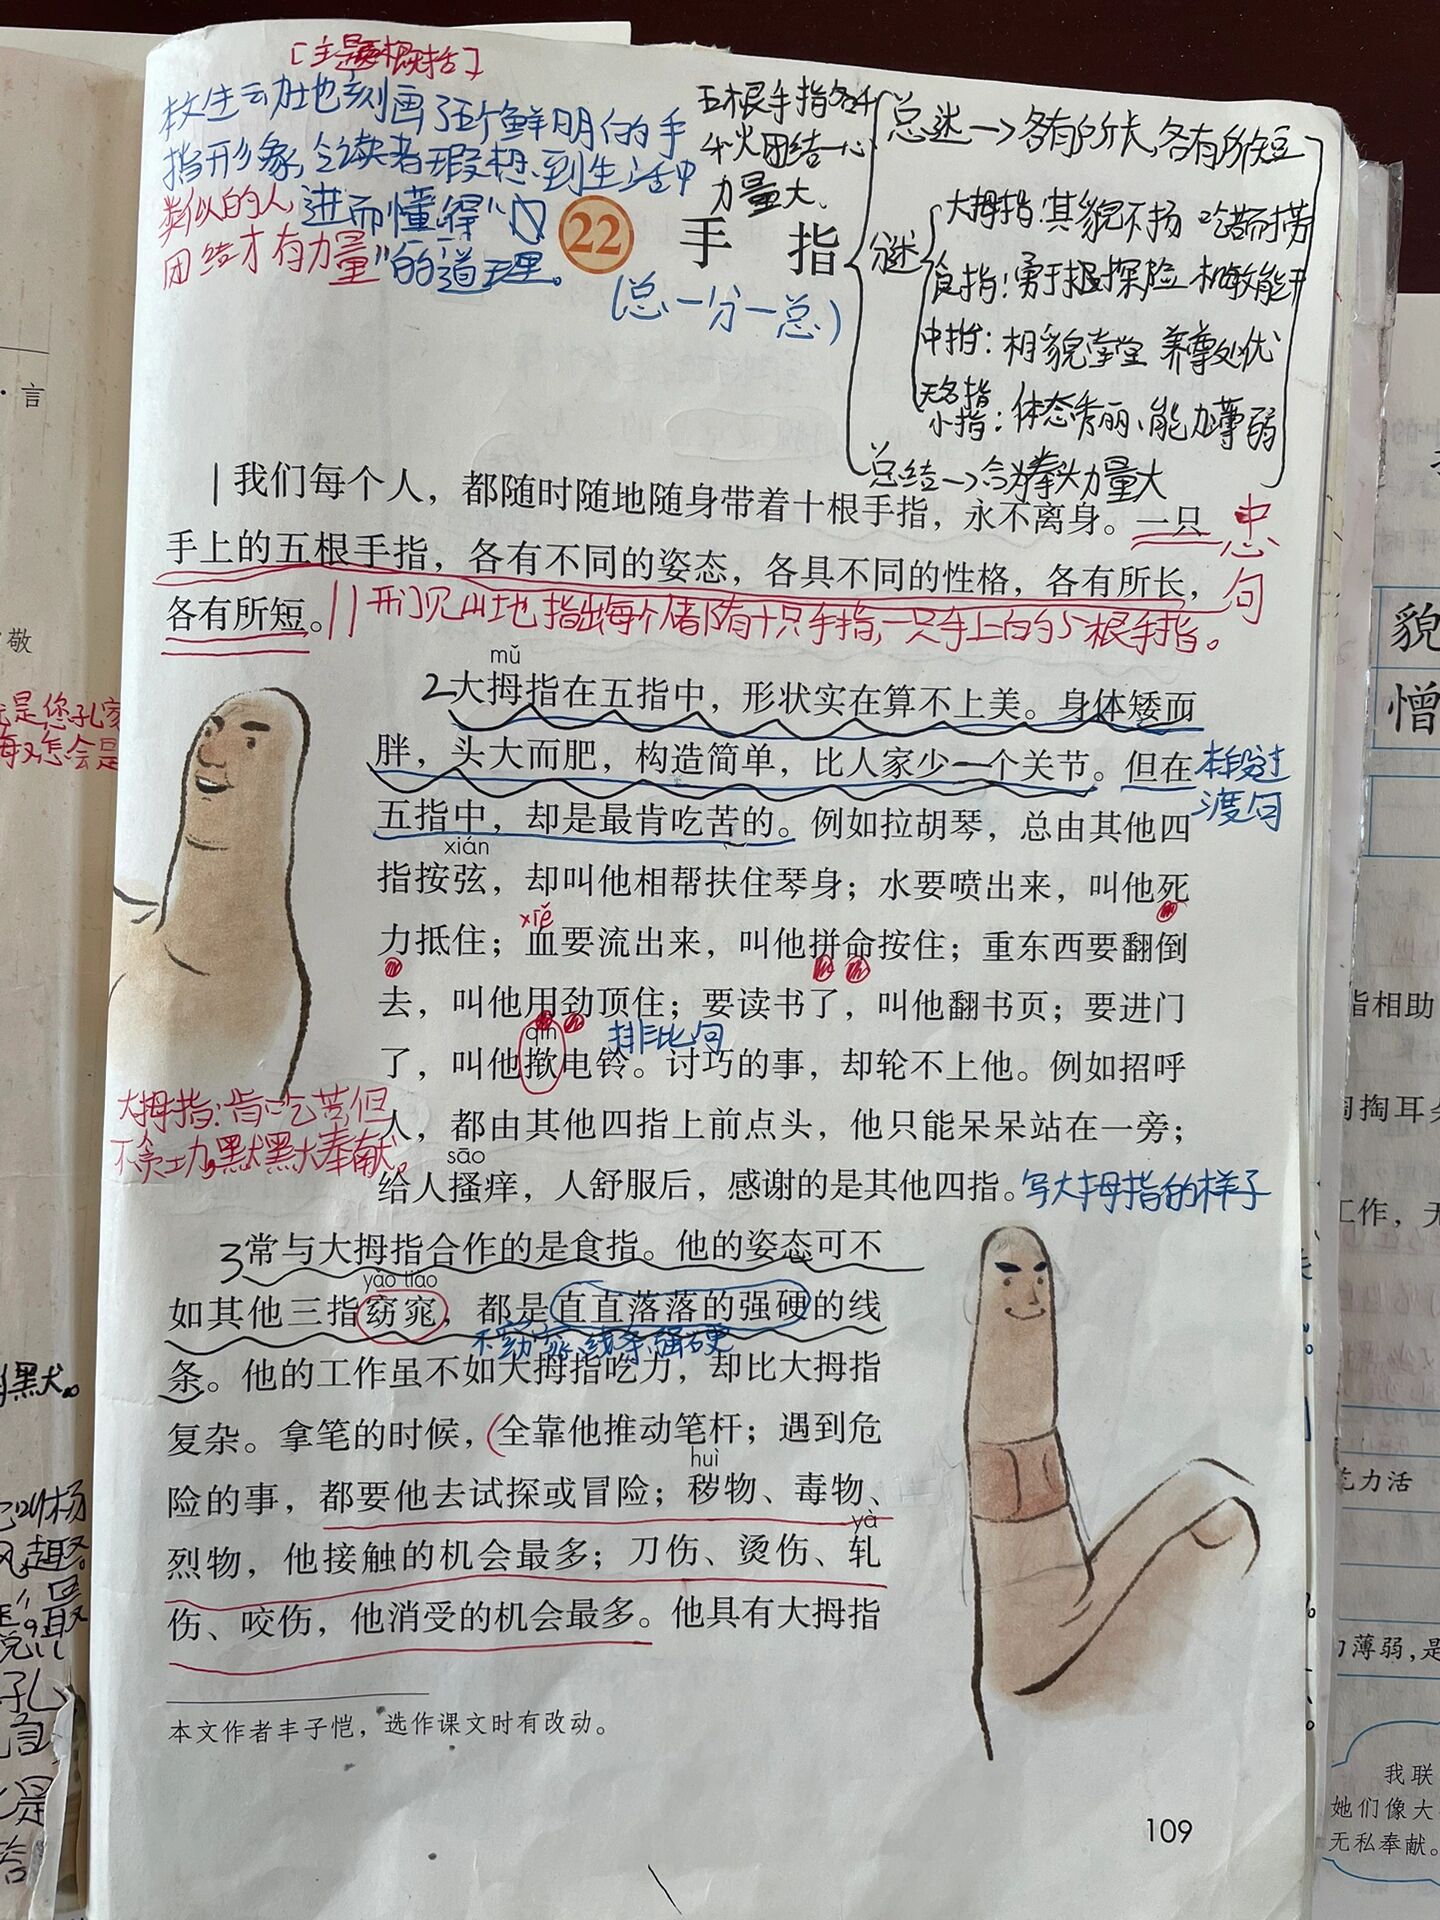 [主题概括]
文生动地刻画了五个鲜明的手
指形象,令读者瑕想到生活中
类似的人,进而懂得"
团结才有力量"的道理。
五根手指各千
秋团结一心
力量大、
总述→各有所长,各有所短
大拇指:其貌不扬 吃苦耐劳
食指:勇于探险 机敏能干
中指:相貌堂堂 养尊处优
无名指
小指:体态秀丽、能力薄弱
总结→合为拳头力量大
22 手 指
(总一分一总)
1我们每个人,都随时随地随身带着十根手指,永不离身。一只
手上的五根手指,各有不同的姿态,各具不同的性格,各有所长,
各有所短。
句
开门见山地,指出每个人都随有十只手指,一只手上的5根手指。
mǔ
2大拇指在五指中,形状实在算不上美。身体矮而
胖,头大而肥,构造简单,比人家少一个关节。但在
本段过
渡句
五指中,却是最肯吃苦的。例如拉胡琴,总由其他四
xián
指按弦,却叫他相帮扶住琴身;水要喷出来,叫他死
xiě
力抵住;血要流出来,叫他拼命按住;重东西要翻倒
去,叫他用劲顶住;要读书了,叫他翻书页;要进门
qìn
排比句
了,叫他揿电铃。讨巧的事,却轮不上他。例如招呼
人,都由其他四指上前点头,他只能呆呆站在一旁;
sāo
给人搔痒,人舒服后,感谢的是其他四指。
写大拇指的样子
大拇指:肯吃苦,但
不贪功,默默奉献。
3常与大拇指合作的是食指。他的姿态可不
yǎo tiǎo
如其他三指窈窕,都是直直落落的强硬的线
不窈窕、线条强硬
条。他的工作虽不如大拇指吃力,却比大拇指
复杂。拿笔的时候,(全靠他推动笔杆;遇到危
huì
险的事,都要他去试探或冒险;秽物、毒物、
yà
烈物,他接触的机会最多;刀伤、烫伤、轧
伤、咬伤,他消受的机会最多。他具有大拇指
本文作者丰子恺,选作课文时有改动。
109
言
敬
是您孔家
怎会是
默。
趣。
是
孔
貌
憎
指相助
掏耳
工作,无
力活
力薄弱,是
我联
她们像大
无私奉献。